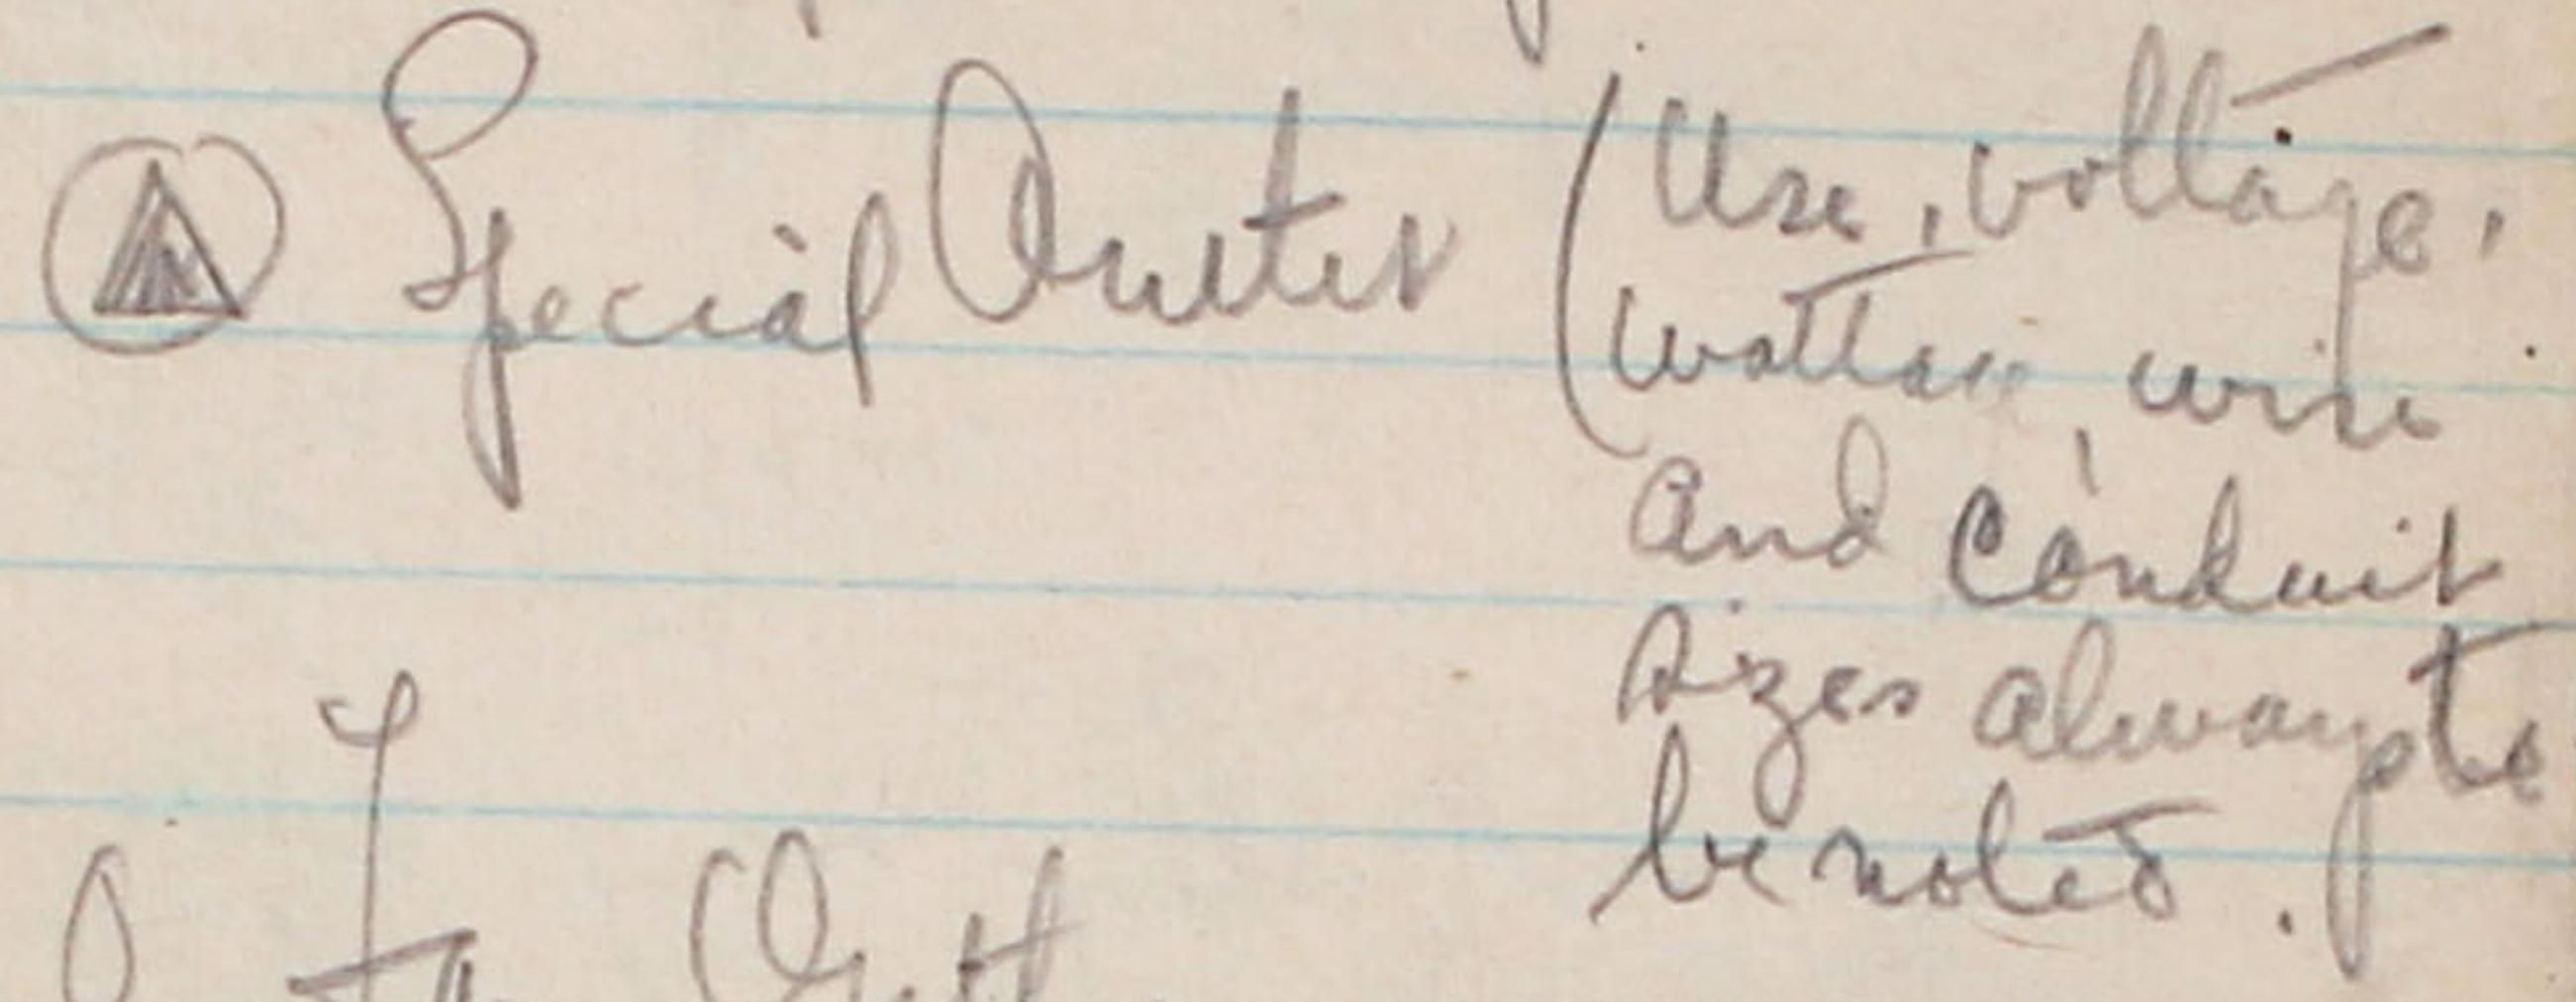 Special Outlet (Use, voltage,
wattage, wire
and Conduit
sizes always to
be noted.
Fan Outl